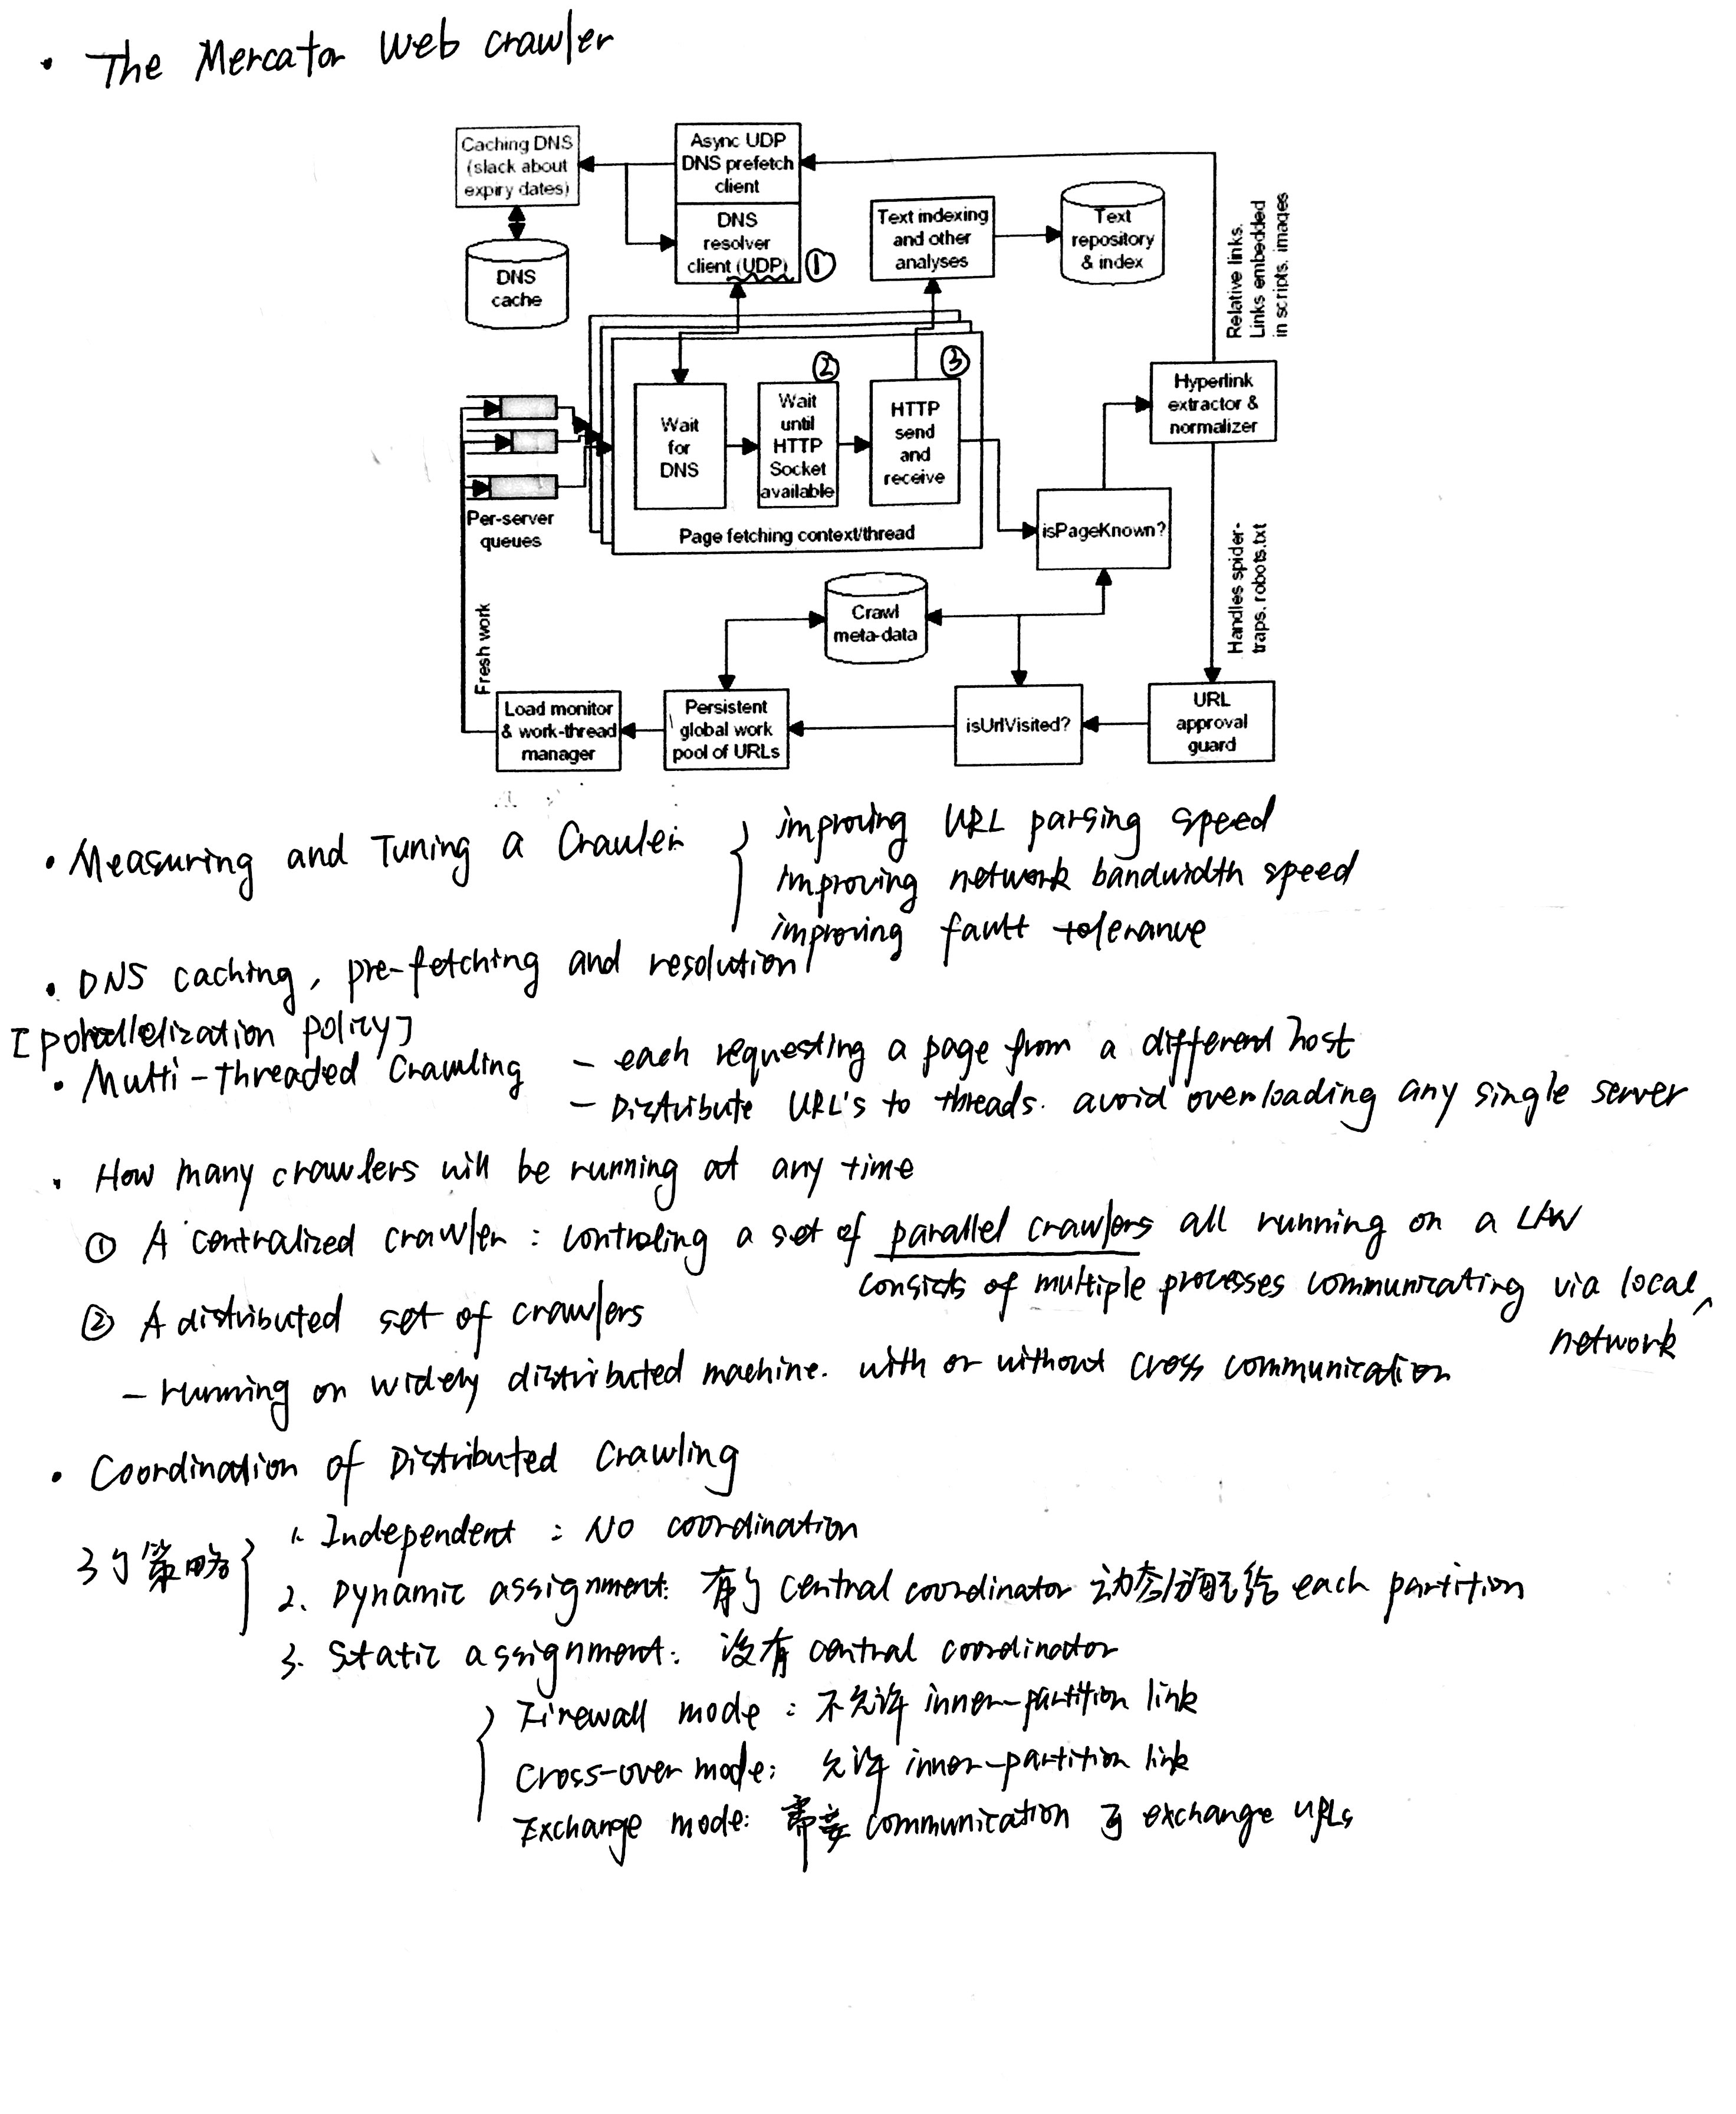 • The Mercator Web crawler
Caching DNS
(slack about
expiry dates)
Async UDP
DNS prefetch
client
DNS
resolver
client (UDP) ①
DNS
cache
Text indexing
and other
analyses
Text
repository
& index
Relative links.
Links embedded
in scripts, images
Hyperlink
extractor &
normalizer
②
③
Wait
for
DNS
Wait
until
HTTP
Socket
available
HTTP
send
and
receive
Page fetching context/thread
Per-server
queues
isPageKnown?
Handles spider-
traps, robots.txt
Crawl
meta-data
Fresh work
Load monitor
& work-thread
manager
Persistent
global work
pool of URLs
isUrlVisited?
URL
approval
guard
• Measuring and Tuning a Crawler
improving URL parsing speed
improving network bandwidth speed
improving fault tolerance
• DNS caching, pre-fetching and resolution
[parallelization policy]
• Multi-threaded Crawling - each requesting a page from a different host
- Distribute URL's to threads. avoid overloading any single server
• How many crawlers will be running at any time
① A centralized crawler : controling a set of parallel crawlers all running on a LAN
consists of multiple processes communicating via local network
② A distributed set of crawlers
- running on widely distributed machine. with or without cross communication
• Coordination of Distributed Crawling
3个策略
1. Independent : No coordination
2. Dynamic assignment: 有个 central coordinator 动态分配给 each partition
3. Static assignment: 没有 central coordinator
Firewall mode : 不允许 inner-partition link
Cross-over mode: 允许 inner-partition link
Exchange mode: 需要 communication 可 exchange URLs